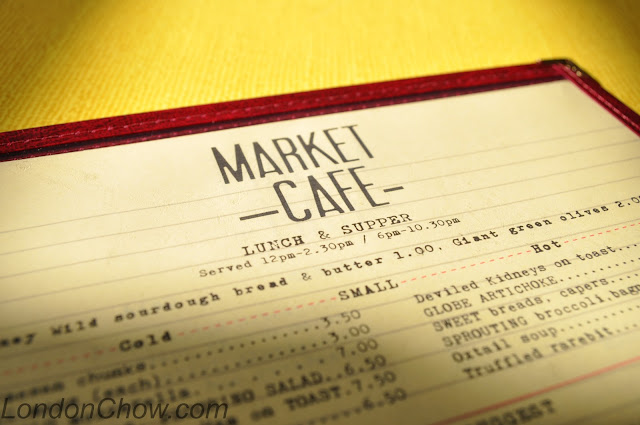 MARKET
—CAFE—
LUNCH & SUPPER
Served 12pm-2.30pm / 6pm-10.30pm
Wild sourdough bread & butter 1.00. Giant green olives 2.00
SMALL
Cold
Hot
3.50
3.00
7.00
SALAD..6.50
on TOAST.7.50
6.50
Deviled Kidneys on toast
GLOBE ARTICHOKE
SWEET breads, capers
SPROUTING broccoli,bagn
Oxtail soup
Truffled rarebit
LondonChow.com